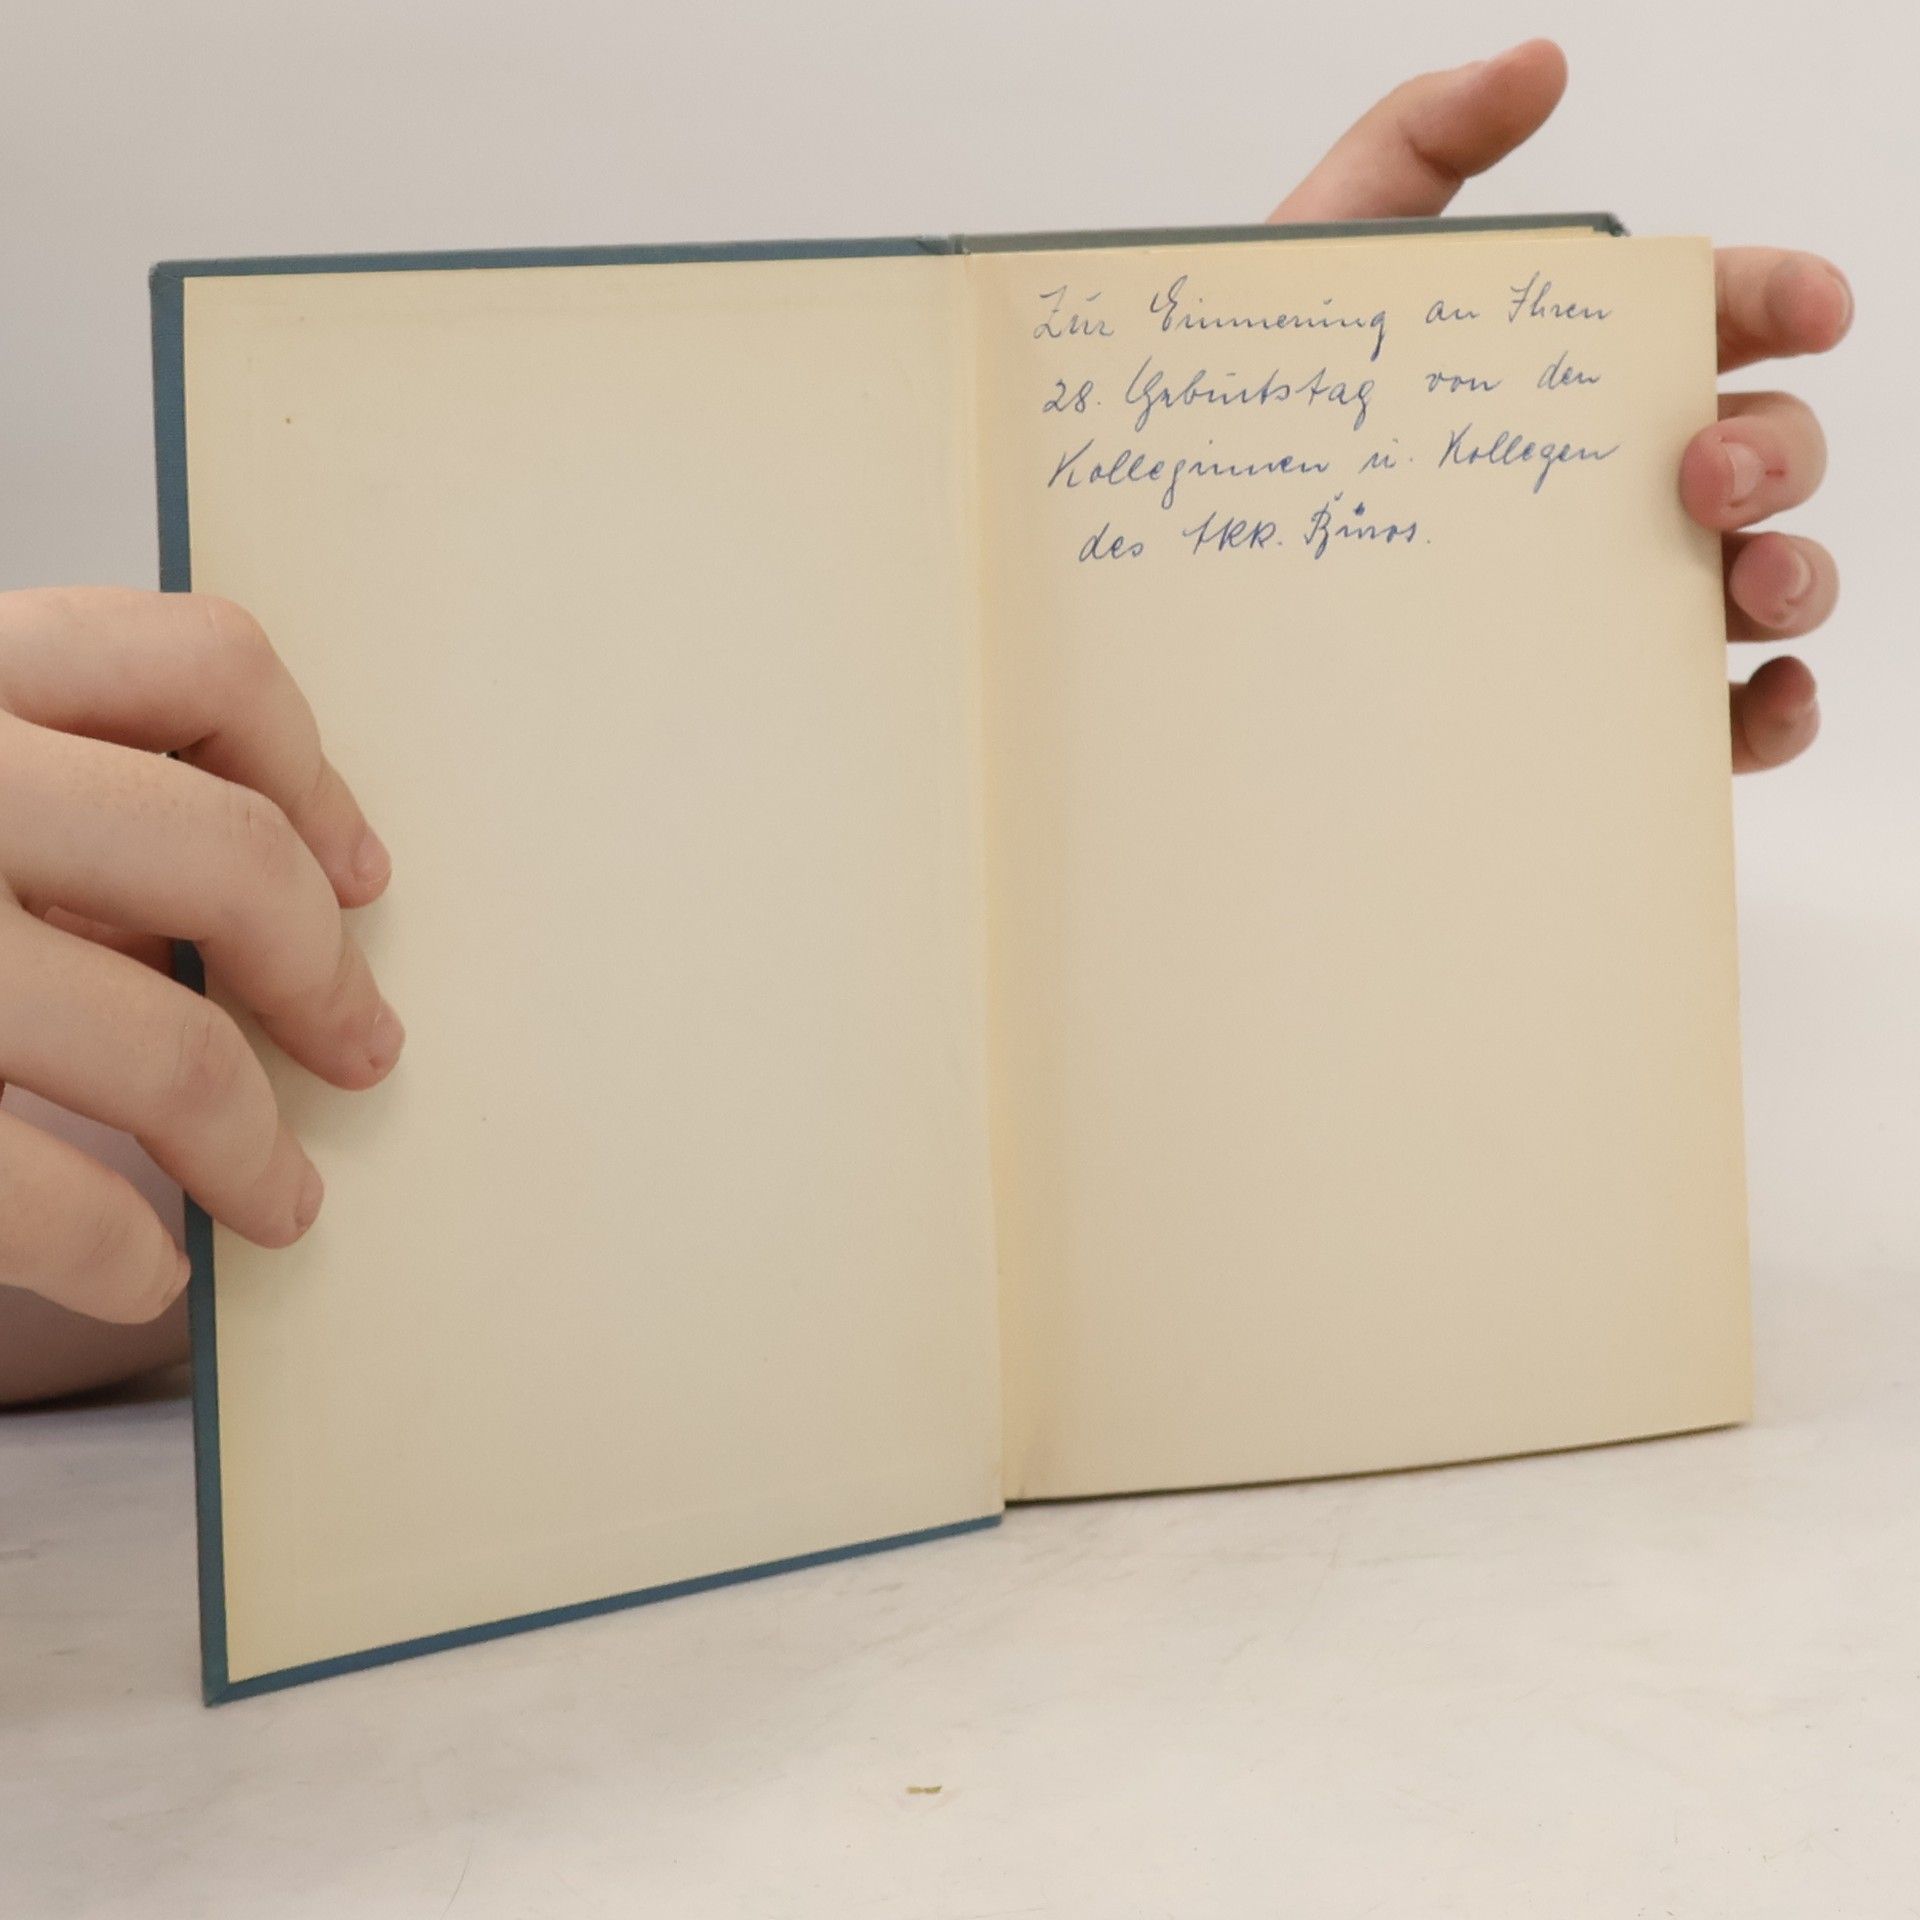 Zur Erinnerung an Ihren
28. Geburtstag von den
Kolleginnen u. Kollegen
des Büros.